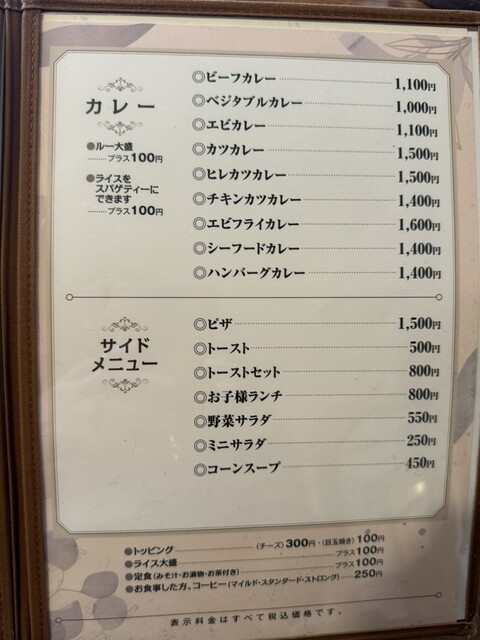 カレー
●ルー大盛
……プラス100円
●ライスを
スパゲティーに
できます
……プラス100円
◎ビーフカレー 1,100円
◎ベジタブルカレー 1,000円
◎エビカレー 1,100円
◎カツカレー 1,500円
◎ヒレカツカレー 1,500円
◎チキンカツカレー 1,400円
◎エビフライカレー 1,600円
◎シーフードカレー 1,400円
◎ハンバーグカレー 1,400円
サイド
メニュー
◎ピザ 1,500円
◎トースト 500円
◎トーストセット 800円
◎お子様ランチ 800円
◎野菜サラダ 550円
◎ミニサラダ 250円
◎コーンスープ 450円
●トッピング (チーズ)300円・(目玉焼き)100円
●ライス大盛 プラス100円
●定食(みそ汁・お漬物・お茶付き) プラス100円
●お食事した方、コーヒー(マイルド・スタンダード・ストロング) 250円
表示料金はすべて税込価格です。